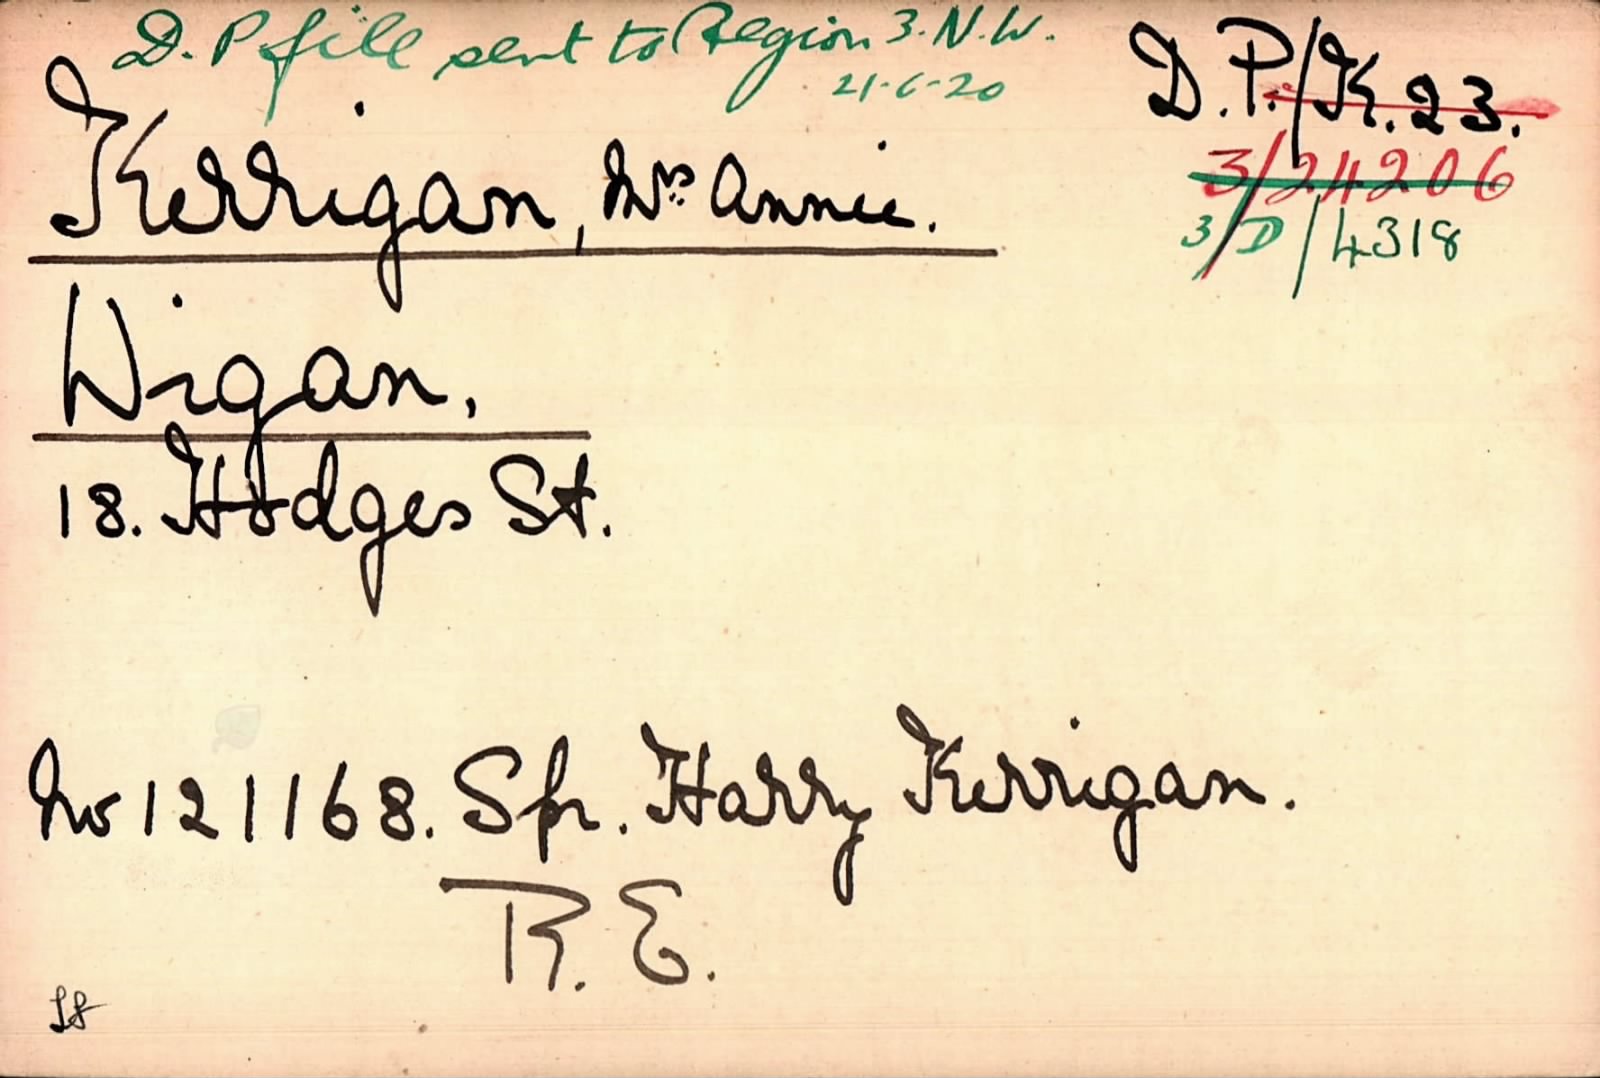 D. P file sent to Region 3. N.W.
21-6-20
D.P./K.23.
3/24206
3/D/4318
Kerrigan, Mrs Annie.
Wigan.
18. Hodges St.
No 121168. Spr. Harry Kerrigan.
R.E.